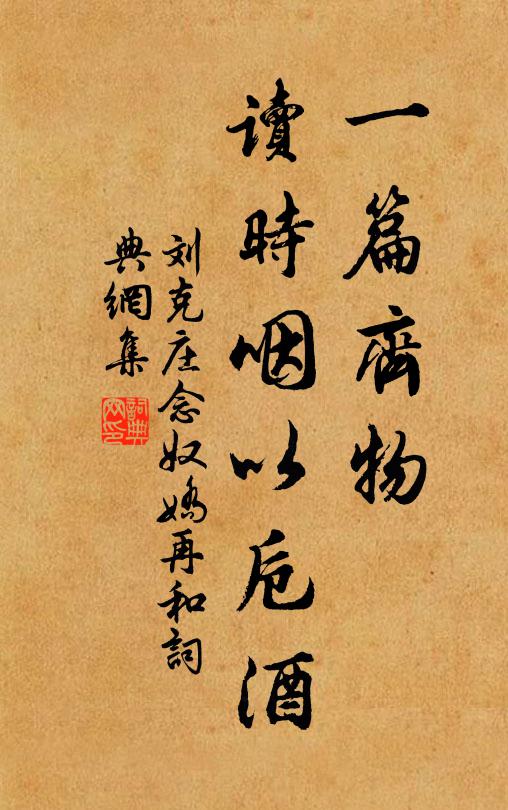 一篇齊物
讀時咽以卮酒
刘克庄念奴嬌再和詞
典網集
詞典
网印